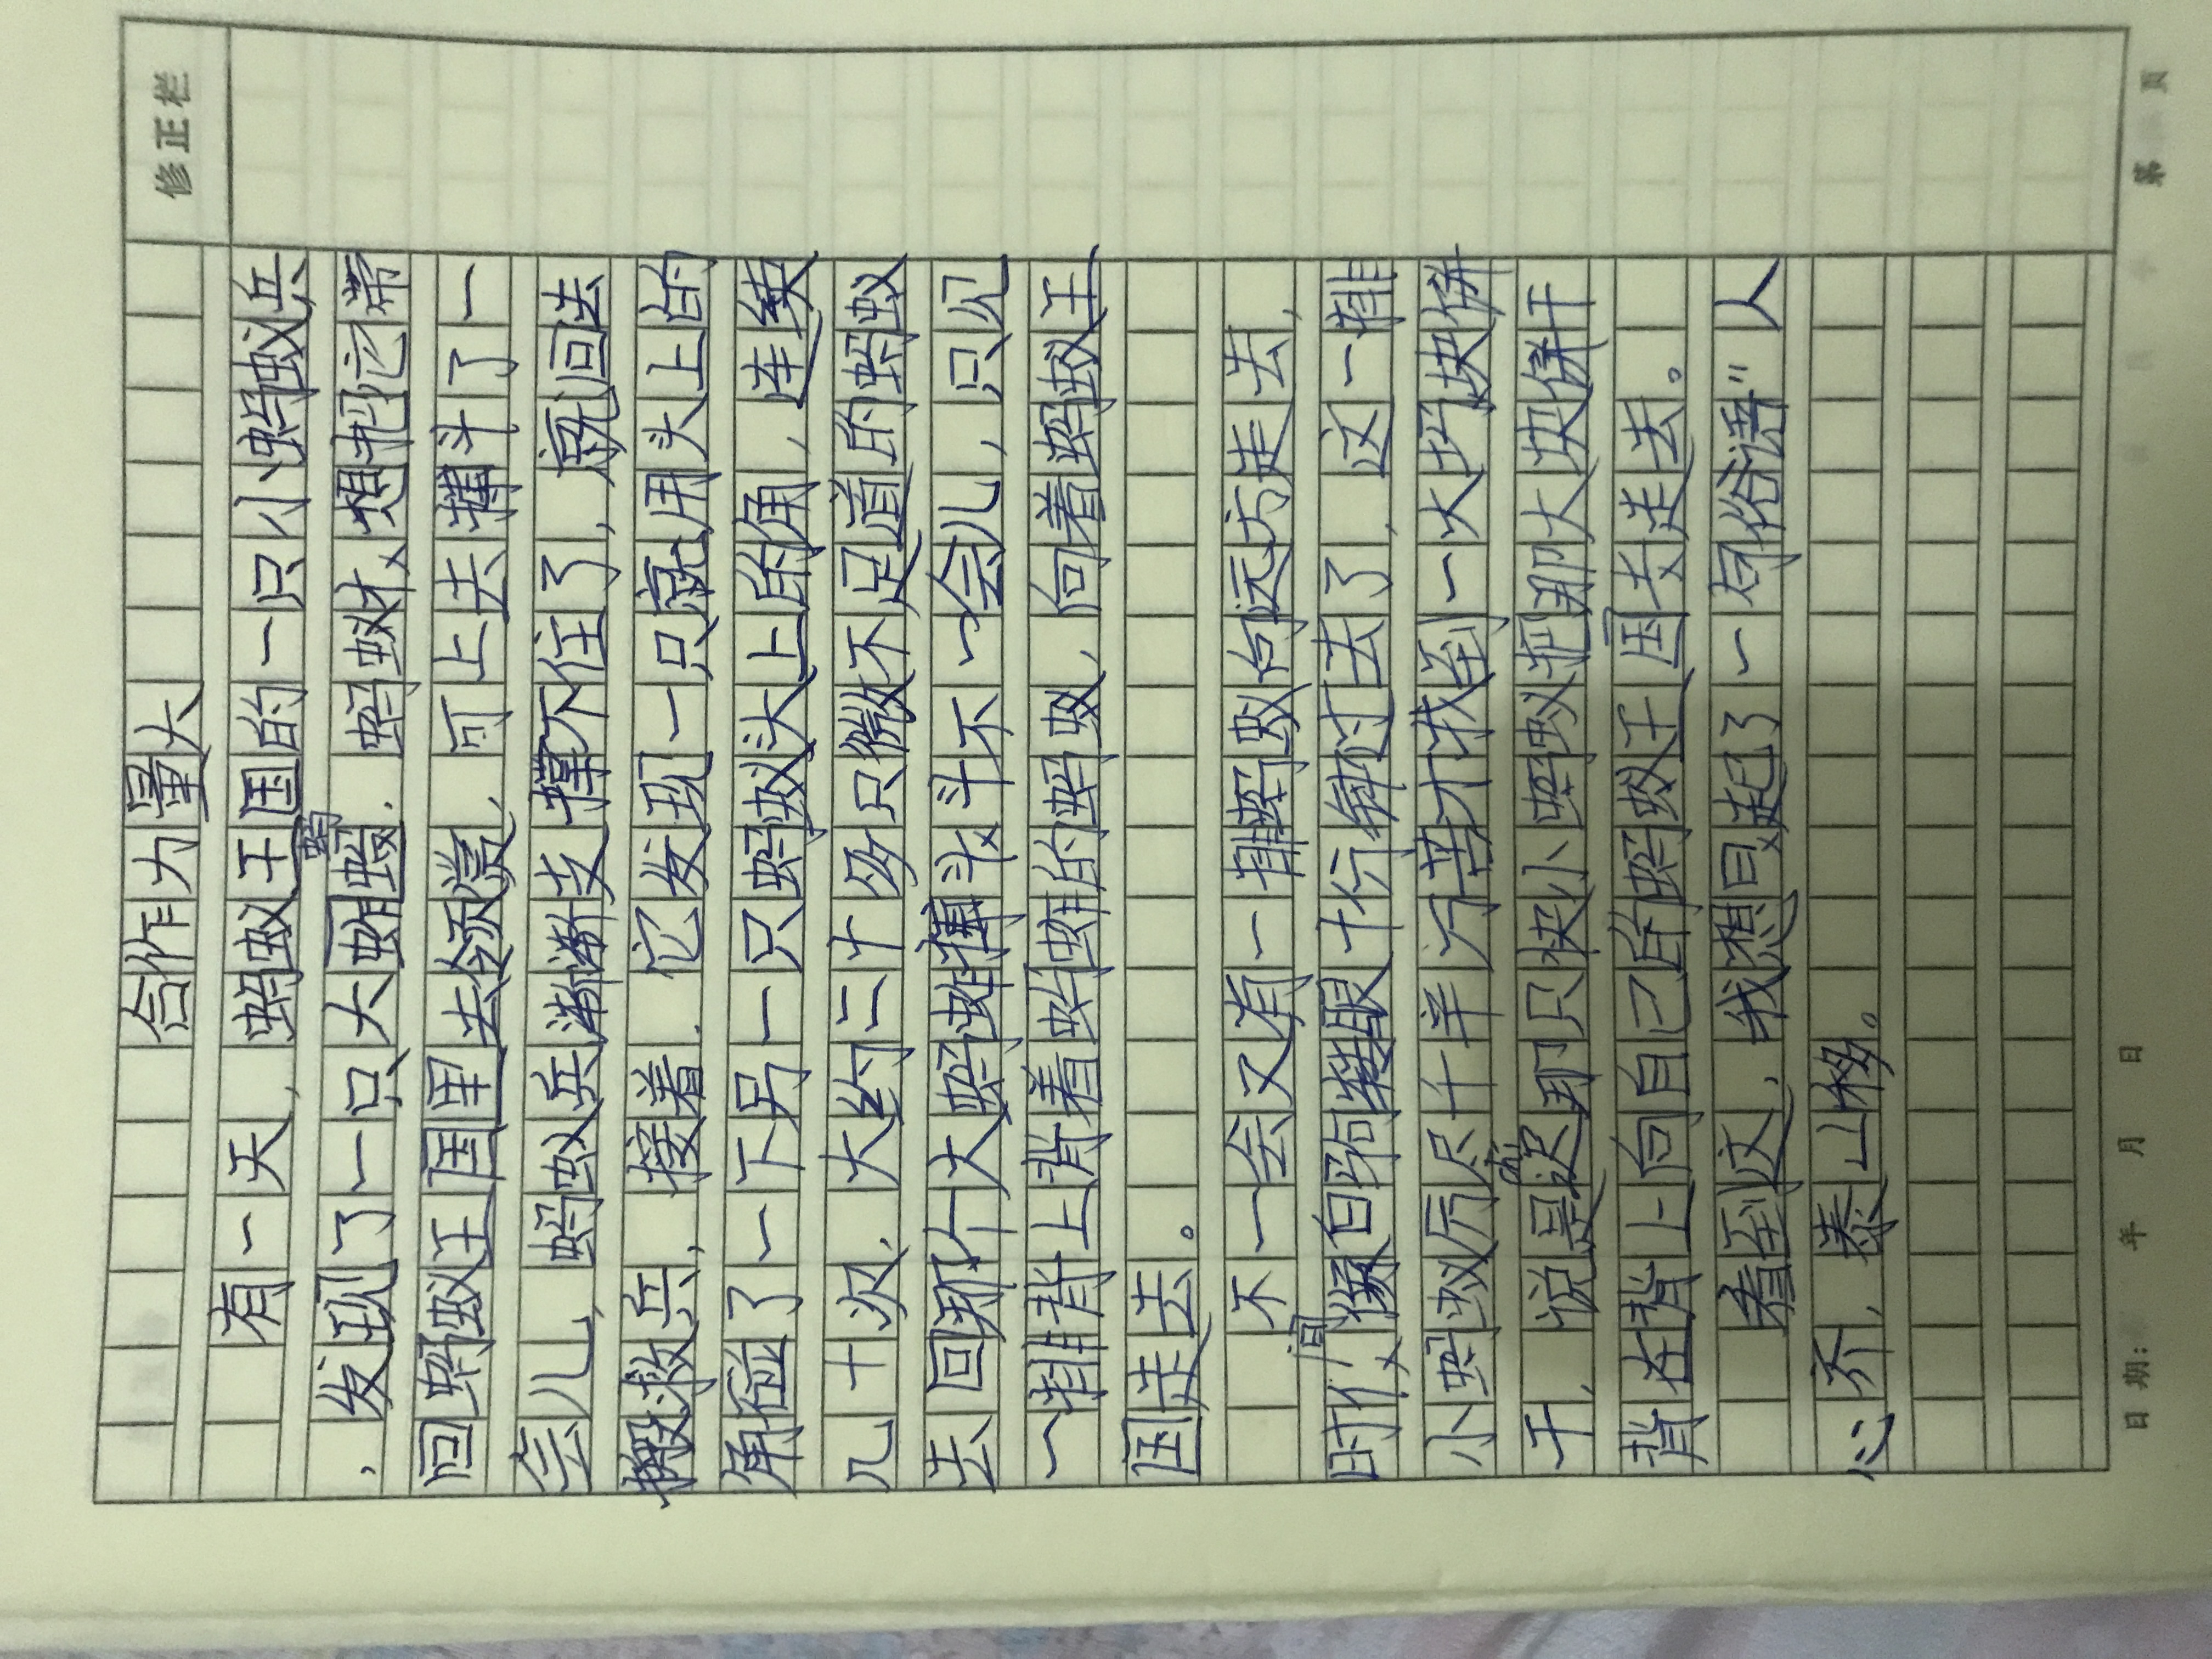 修正栏
合作力量大
有一天，蚂蚁王国的一只小蚂蚁兵
，发现了一只大蚱蜢，蚂蚁，想把它带
回蚂蚁王国里去领赏，可上去搏斗了一
会儿，蚂蚁兵渐渐支撑不住了，就回去
搬救兵，接着，它发现一只就用头上的
角碰了一下另一只蚂蚁头上的角，连续
几十次，大约二十多只微不足道的蚂蚁
去回那个大蚂蚱搏斗不一会儿，只见
一排背上背着蚂蚱的蚂蚁，向着蚂蚁王
国走去。
不一会又有一排蚂蚁向远方走去，
时间像白驹十分钟过去了，这一排
小蚂蚁历尽千辛万苦才找到一大块饼
干，说是迟那只快小蚂蚁把那大块饼干
背在背上向自己的蚂蚁王国走去。
看到这，我想起了一句俗语"人
心齐，泰山移。
日期： 年 月 日
第 页